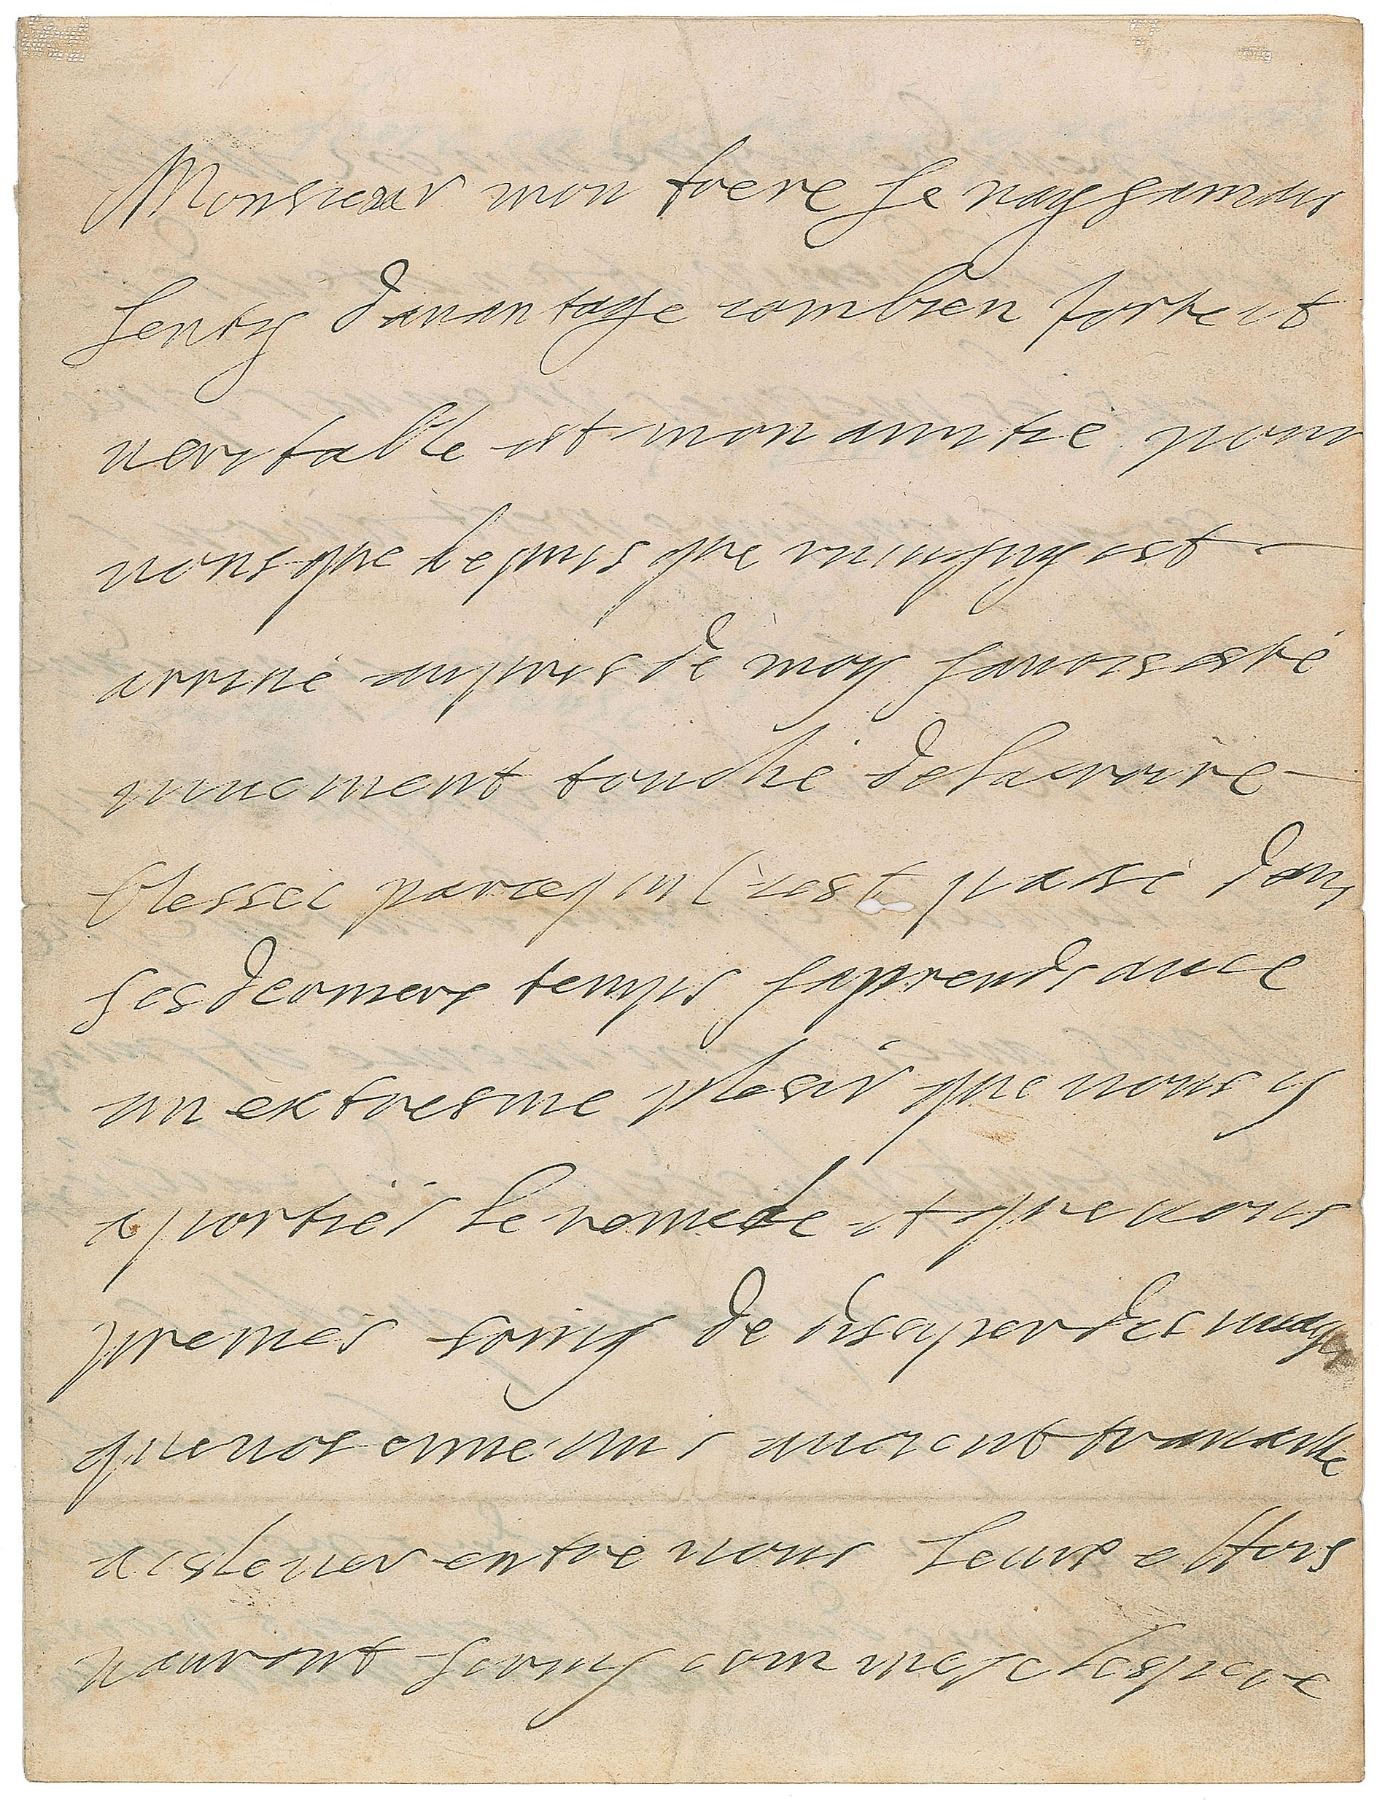 Monsieur mon frere je nay jamais
senty davantage combien forte et
veritable est mon amitié pour
vous que depuis que est
arrivé aupres de moy javois esté
vivement touché de la croire
blessée par ce qui sest passé dans
ses derniers temps japrends avec
un extresme plesir que vous y
aportiés le remede et que vous
premés soing de disiper des nuages
que nos ennemis avoient travaillé
a eslever entre nous leurs effors
nauront servy comme je lespere